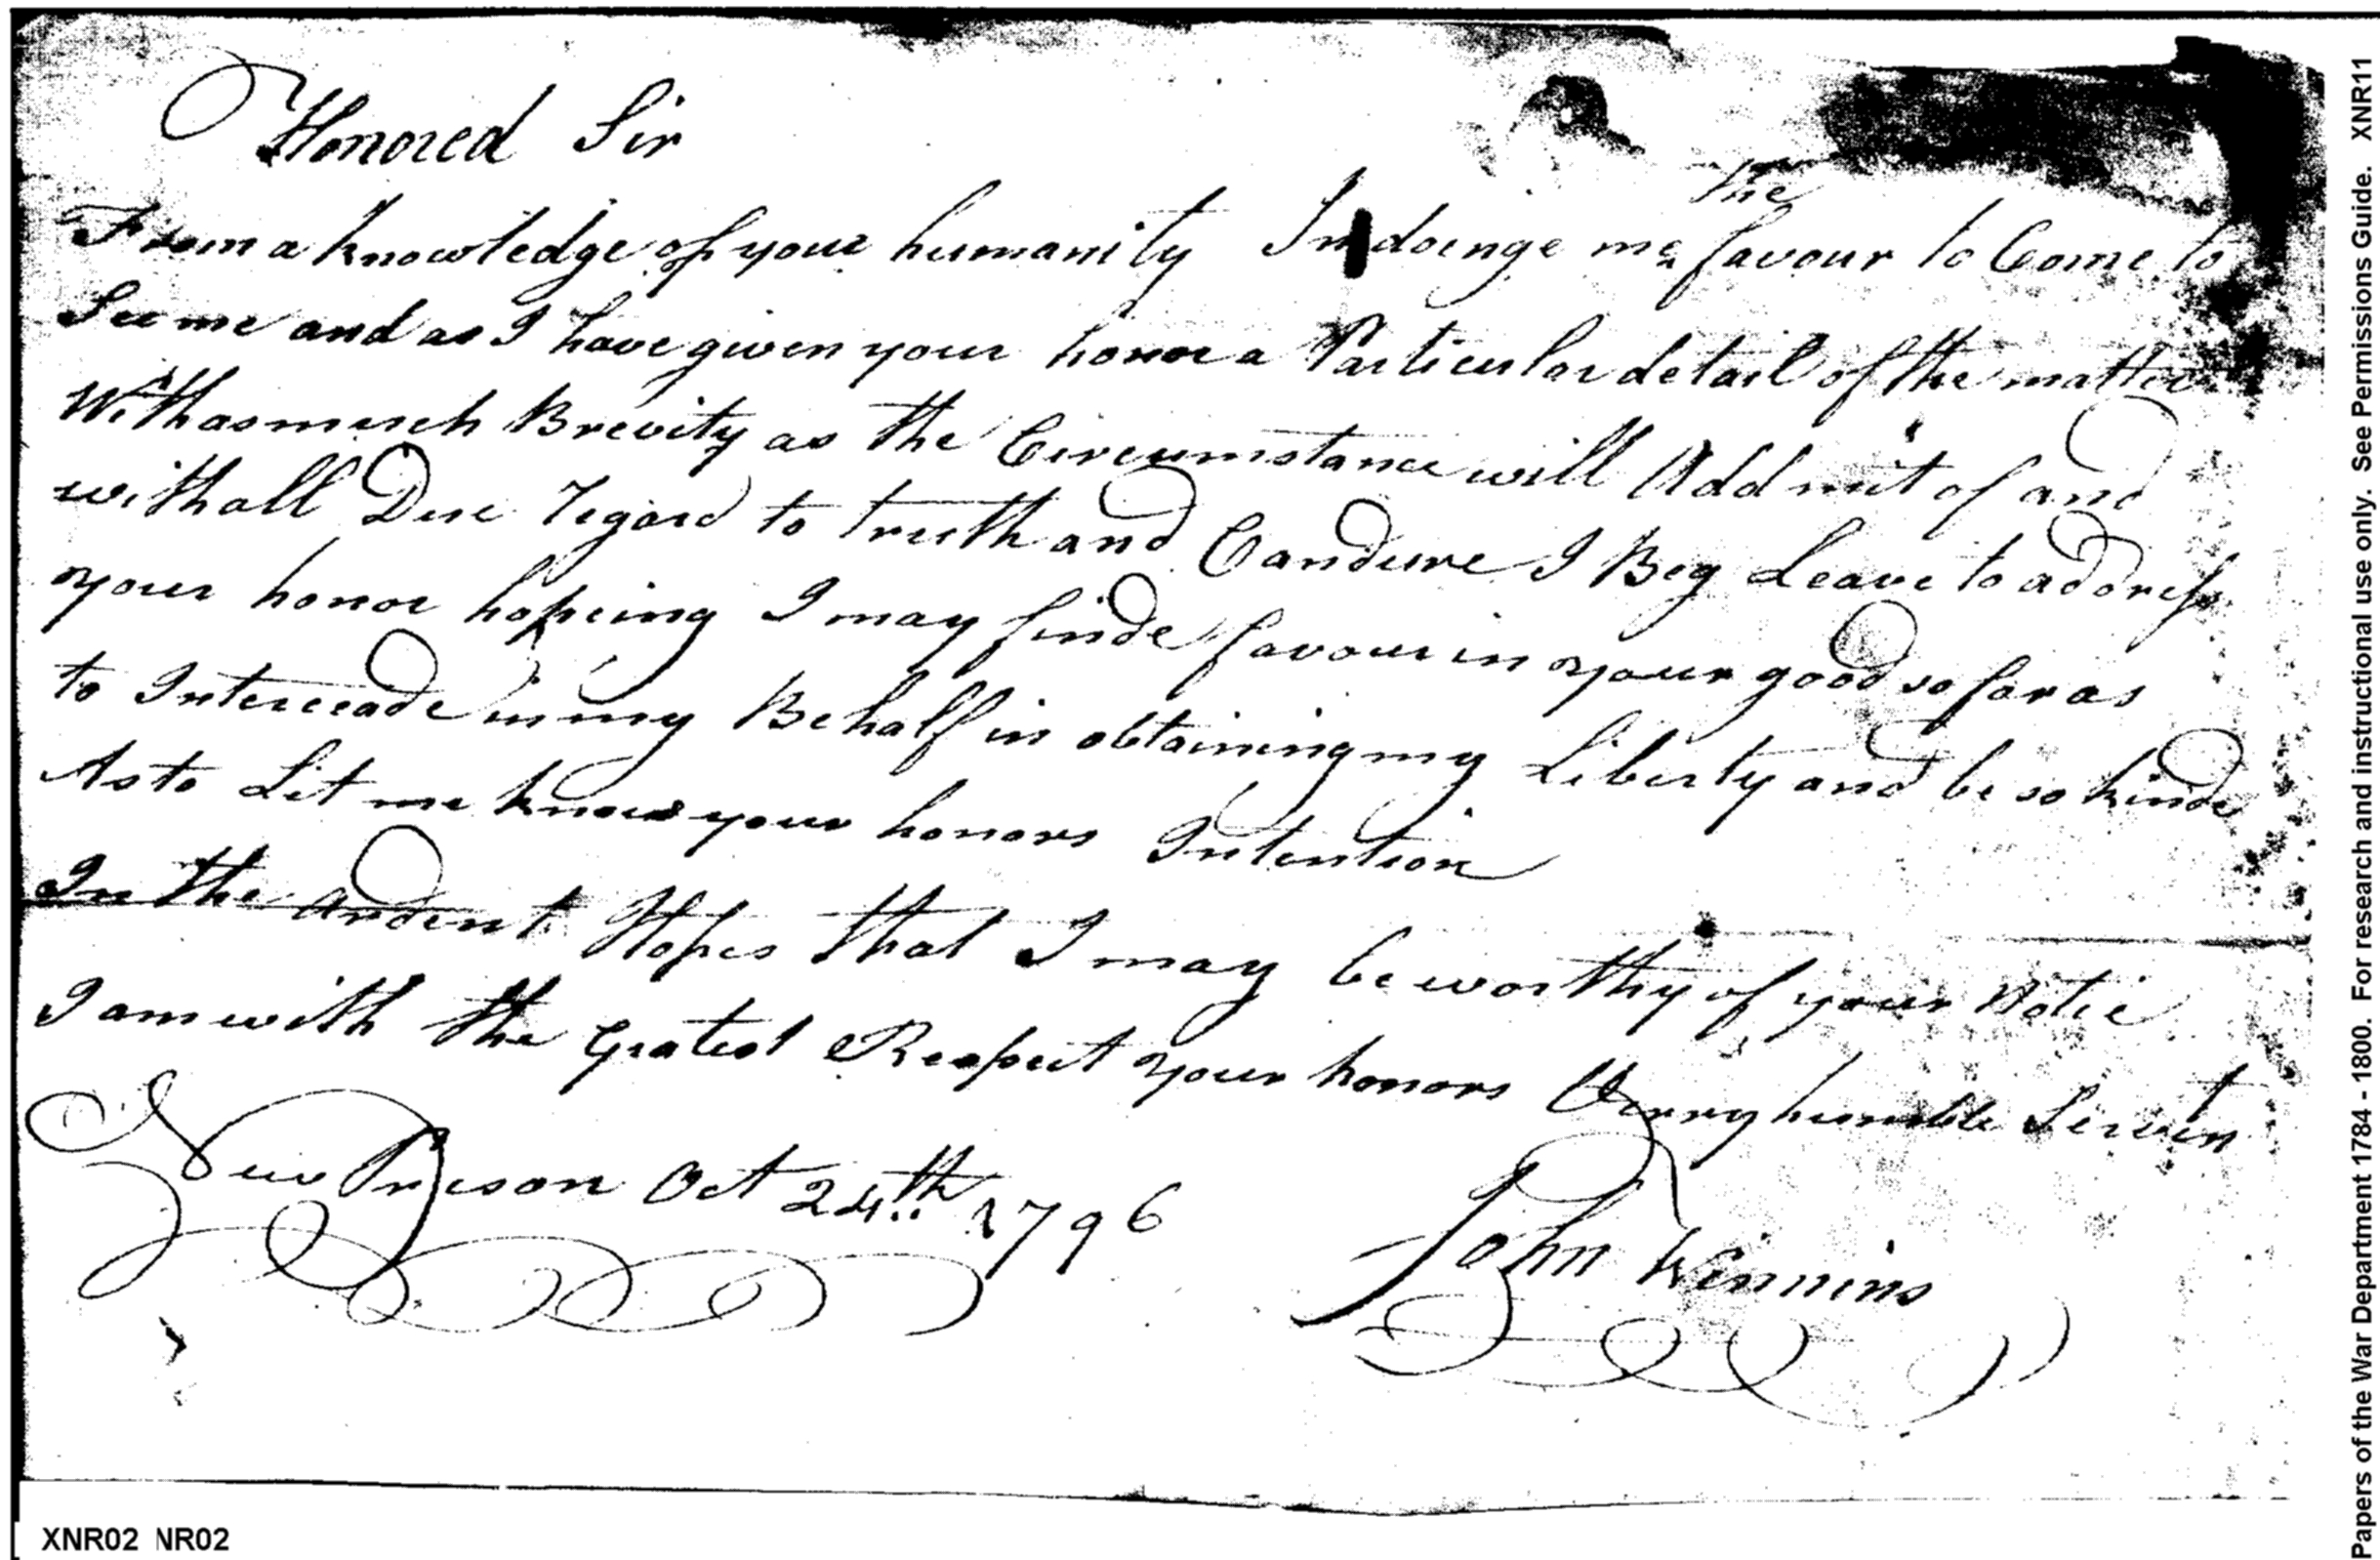 Honored Sir
the
From a knowledge of your humanity In doinge me favour to Come to
See me and as I have given your honor a Particular detail of the matter
With as much Brevity as the Circumstance will Addmit of and
with all Due regard to truth and Candure I Beg Leave to address
your honor hopeing I may finde favour in your good so far as
to Interceade in my Behalf in obtaining my Liberty and be so kinde
As to Let me know your honors Intention
In the ardent Hopes that I may be worthy of your Notic
I am with the Gratest Respect your honors Verry humble Servtn
New Prieson Oct 24th 1796
John Winnins
Papers of the War Department 1784 - 1800. For research and instructional use only. See Permissions Guide. XNR11
XNR02 NR02